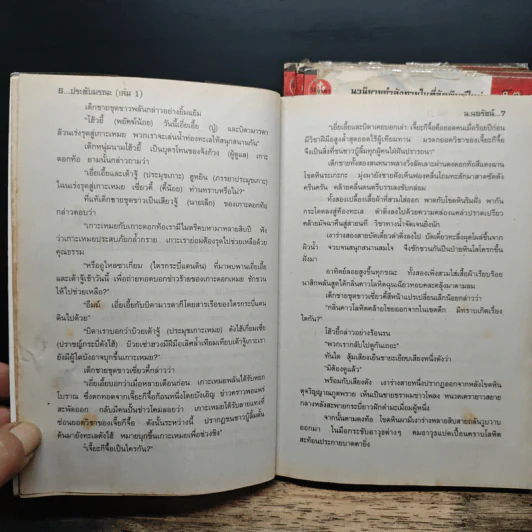 ๕...ประดับมรณะ (เล่ม 1)
เด็กชายชุดขาวพลันกล่าวอย่างยิ้มแย้ม
"เฮ้าเอ๊ย
วันนี้เอี้ยเอี้ย (ปู่) และบิดามารดา
ล้วนเร่งรุดสู่เกาะเหมย พวกเราจะเล่นน้ำท่องทะเลให้สนุกสนานกัน"
เด็กหนุ่มนาม
เป็นบุตรโทนของ
เกาะ
ดอกท้อ ยามนั้นกล่าวถามว่า
"เอี้ยเอี้ยและเต้าจู้ (ประมุขเกาะ)
ไฉนเร่งรุดสู่เกาะเหมย
ท่านทราบหรือไม่?"
ที่แท้เด็กชายชุดขาวเป็นเสียวจู้ (นายเล็ก) ของเกาะดอกท้อ
กล่าวตอบว่า
"เกาะเหมยกับเกาะดอกท้อเรามีไมตรีคบหามาหลายสิบปี ฟัง
ว่าเกาะเหมยประสบภัยกล้ำกราย เกาะเราย่อมต้องรุดไปช่วยเหลือด้วย
คุณธรรม
ที่มาพบพานเอี้ยเอี้ย
และเต้าจู้เช้าวันนี้ เพื่อถ่ายทอดบอกข่าวร้ายของเกาะดอกเหมย ชักชวน
ให้ไปช่วยเหลือ?"
"อืมม์ เอี้ยเอี้ยกับบิดามารดาก็โดยสารเรือของไตรกระบี่แดน
ดินไปด้วย"
"บิดาเราบอกว่าป้วยเต้าจู้ (ประมุขเกาะเหมย)
ป้วยเช่าฮวงมีฝีมือเลิศล้ำเทียมเทียบเต้าจู้เกาะเรา
ยังมีผู้ใดบังอาจบุกขึ้นเกาะเหมย?"
เด็กชายชุดขาวเซี่ยวคี้กล่าวว่า
"เอี้ยเอี้ยบอกว่าเมื่อหลายเดือนก่อน เกาะเหมยพลันได้รับหยก
โบราณ ซึ่งตกทอดจากเจี้ยะกี่จื้อก้อนหนึ่งโดยบังเอิญ ข่าวคราวพอแพร่
สะพัดออก กลับมีคนปั้นข่าวใหม่ลอยว่า เกาะเหมยได้รับลายแทงที่
ซ่อนยอดวิชาของเจี้ยะกี่จื้อ ดังนั้นระหว่างนี้ ปรากฏชนชาวบู๊ลิ้มดั้นด้น
ค้นมายังทะเลตังไฮ้ หมายบุกขึ้นเกาะเหมยเพื่อช่วงชิง"
"เจี้ยะกี่จื้อเป็นใครกัน?"
น.นพรัตน์...7
"เอี้ยเอี้ยและบิดาเคยบอกเล่า เจี้ยะกี่จื้อคือยอดคนเมื่อร้อยปีก่อน
มีวิชาฝีมือสูงล้ำสุดยอดไร้ผู้เทียมทาน มรดกยอดวิชาของเจี้ยะกี่จื้อ
จึงเป็นสิ่งที่ชนชาวบู๊ลิ้มทุกผู้คนใฝ่ฝันปรารถนา"
เด็กชายทั้งสองสนทนาพลางวิ่งลัดเลาะผ่านดงดอกท้อสีแดงฉาน
โขดหินระเกะกะ มุ่งมายังชายฝั่งเห็นฟองคลื่นโถมทะลักมาสาดซัดดัง
ครืนครัน คล้ายคลื่นดนตรีบรรเลงขับกล่อม
ทั้งสองเปลื้องเสื้อผ้าที่สวมใส่ออก พาดกับโขดหินริมฝั่ง พากัน
กระโดดลงสู่ท้องทะเล ดำดิ่งลงไปด้วยความคล่องแคล่วปราดเปรียว
คล้ายมัจฉาคืนสู่สายนที วิชาทางน้ำจัดเจนยิ่งนัก
เงาร่างสองสายบัดเดี๋ยวดำดิ่งลงไป บัดเดี๋ยวทะลึ่งผุดโผล่ขึ้นจาก
ผิวน้ำ จวบจนสนุกสนานสมใจ จึงชักชวนกันปีนป่ายหินโสโครกขึ้น
ฝั่งมา
อาทิตย์ลอยสูงขึ้นทุกขณะ ทั้งสองเพิ่งสวมใส่เสื้อผ้าเรียบร้อย
นาสิกพลันสูดได้กลิ่นคาวโลหิตฉุนเฉียวหอบคละคลุ้งมาตามลม
เด็กชายชุดขาวเซี่ยวคี้สีหน้าแปรเปลี่ยนเล็กน้อยกล่าวว่า
"กลิ่นคาวโลหิตคล้ายโชยออกจากในเขตลึก มิทราบเกิดเรื่อง
ใดกัน?"
กล่าวอย่างร้อนรน
"พวกเรากลับไปดูกันเถอะ"
ทันใด สุ้มเสียงเย็นชาเยือกเสียงหนึ่งดังว่า
"มิต้องดูแล้ว"
พร้อมกับเสียงดัง เงาร่างสายหนึ่งปรากฏออกจากหลังโขดหิน
เห็นเป็นชายชราผมขาวโพลง หนวดเครายาวสยาย
กลางหลังสะพายกระบี่ยาวฝักดำมะเมื่อมผู้หนึ่ง
จากนั้นตามดงท้อ โขดหินผามีเงาร่างหลายสิบสายถลันวูบวาบ
ออกมา ในมือกระชับอาวุธต่างๆ คมอาวุธแปดเปื้อนคราบโลหิต
สะท้อนประกายบาดตายิ่ง